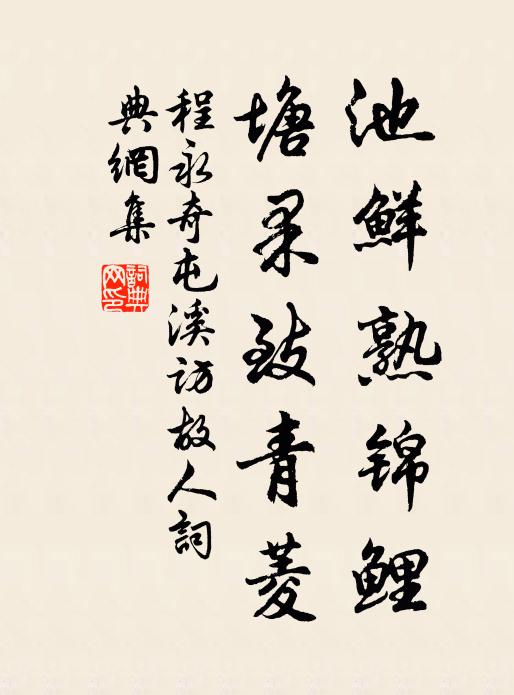 池鮮熟锦鲤
塘果致青菱
程永奇屯溪访故人詞
典網集
詞典
网印